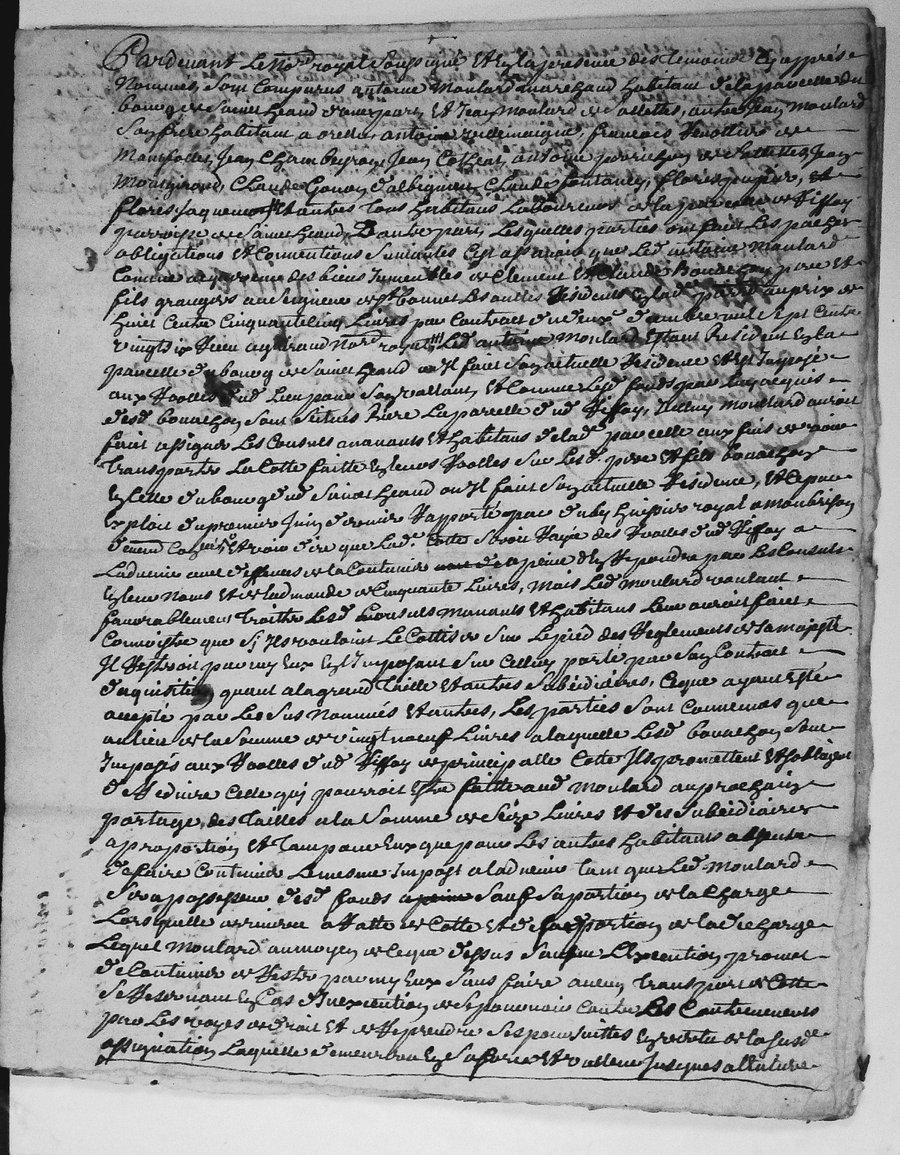 Pardevant le No.re royal soussigné et en la presence des temoins cy apprés
Nommés, sont comparus antoine moulard marchand habitant de la parcelle du
bourg de saint heand d'une part, Et Jean moulard de valettes, autre Jean moulard
son frere habitant a antoine villemaigne, francois de
Jean Chambeyron, Jean antoine de valettes, Jean
Claude Gonon d'albigneu, Claude fontaney, flores et
flores Jaquemont Et autres tous habitans Laboureurs de la parcelle de Riffay
parroisse de saint heand, D'autre part, Lesquelles parties ont fait Les pactes
obligations Et Conventions suivantes C'est assavoir que Led. antoine moulard
Comme acquereur des biens immeubles de Clement Et Claude Bonnechon pere Et
fils grangers au seigneur de st. bonnet Les oulles Residents en lad. par.lle au prix de
huict Cents Cinquante Cinq Livres par Contract du deux.e d'aoust mil sept Cents
vingt six Receu No.re royal, Led. antoine moulard Estant Resident En la
parcelle du bourg de saint heand ou Il fait son actuelle Residence Et Est Imposé
aux Roolles dud. Lieu pour son vaillant, Et Comme Lesd. fonds par luy acquis
desd. bonnechon sont scitués Riere La parcelle dud. Riffay, Icelluy moulard auroit
fait assigner Les Consuls manants Et habitans de lad. parcelle aux fins de voir
transporter La Cotte faitte En leurs Roolles sur Lesd. pere et fils bonnechon
En celle du bourg dud. saint heand ou Il fait son actuelle Residence, Et Ce par
Exploit du premier Juin dernier Rapporté par duby huissier royal a montbrison
Et voir dire que Lad. Cotte seroit Rayée des Roolles dud. Riffay a
Ladvenir avec deffences de la Continuer a peine d'En Repondre par Les Consuls
En leur Noms Et de Lad. amande de Cinquante Livres, mais Led. moulard voulant
favorablement traitter Lesd. Consuls manants Et habitans Leur auroit fait
Connoistre que s'Ils vouloint Le Cottiser sur Le pied des Reglements de sa majesté
Il Resteroit parmy Eux En L'Imposant sur Celluy porté par son Contract
d'aquisition quant a la grand Taille Et autres subsidiaires, Ce que ayant Esté
accepté par Les sus Nommés Et autres, Les parties sont Convenues que
au lieu de la somme de vingt neuf Livres a laquelle Lesd. bonnechon sont
Imposés aux Roolles dud. Riffay de principalle Cotte Ils promettent Et s'obligent
de Reduire Celle qui pourroit Estre faitte aud. moulard au prochain
partage des Tailles a la somme de seize Livres Et des subsidiaires
a proportion Et tant pour Eux que pour Les autres habitants
de faire Continuer Le mesme Impost a ladvenir tant que Led. moulard
sera possesseur desd. fonds sauf sa portion de la Charge
Lorsquelle arrivera Cotte Et de sa portion de la decharge
Lequel moulard au moyen de Ce que dessus sauf son Execution promet
de Continuer de Rester parmy Eux sans faire aucun transport de Cotte
se Reservant En Cas d'Inexecution de se pourvoir Contre Les Contrevenants
par Les voyes de droit Et de Reprendre ses poursuittes En vertu de la susd.e
assignation Laquelle demeurera En sa force Et valleur Jusques